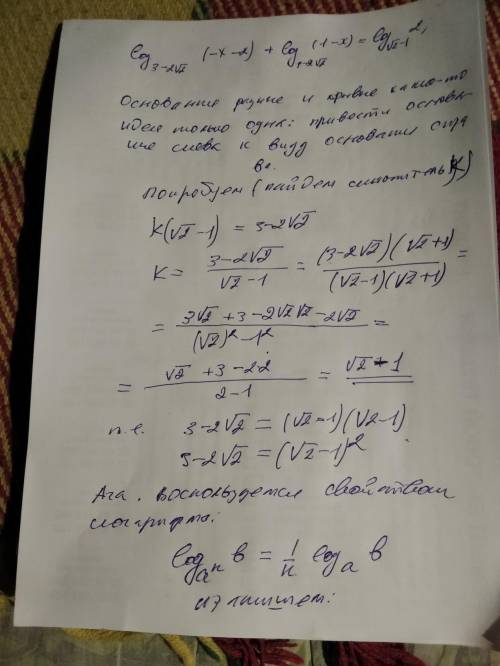 log₃₋₂√₂ (-x-2) + log (1-x) = log√₂₋₁ 2,
Основание разные и кривые какие-то
идея только одна: привести основан
слева к виду основания спра
ва.
Попробуем (найдем множитель K)
K(√2-1) = 3-2√2
K = (3-2√2)/(√2-1) = ((3-2√2)(√2+1))/((√2-1)(√2+1)) =
= (3√2+3-2√2√2-2√2)/((√2)²-1²) =
= (√2+3-2·2)/(2-1) = √2-1
т.е. 3-2√2 = (√2-1)(√2-1)
3-2√2 = (√2-1)²
Ага, воспользуемся свойством
логарифма:
logₐₙ b = 1/n logₐ b